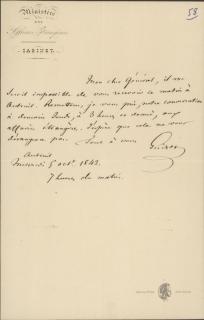 Ministère
DES
Affaires Étrangères
CABINET.
53.
Mon cher Général, il me
serait impossible de vous recevoir ce matin à
Auteuil. Remettons, je vous prie, notre conversation
à demain Jeudi, à 3 heures et demie, aux
affaires étrangères. J'espère que cela ne vous
dérangera pas.
Tout à vous
Guizot
Auteuil
Mercredi 5 oct. 1842.
7 heures du matin.